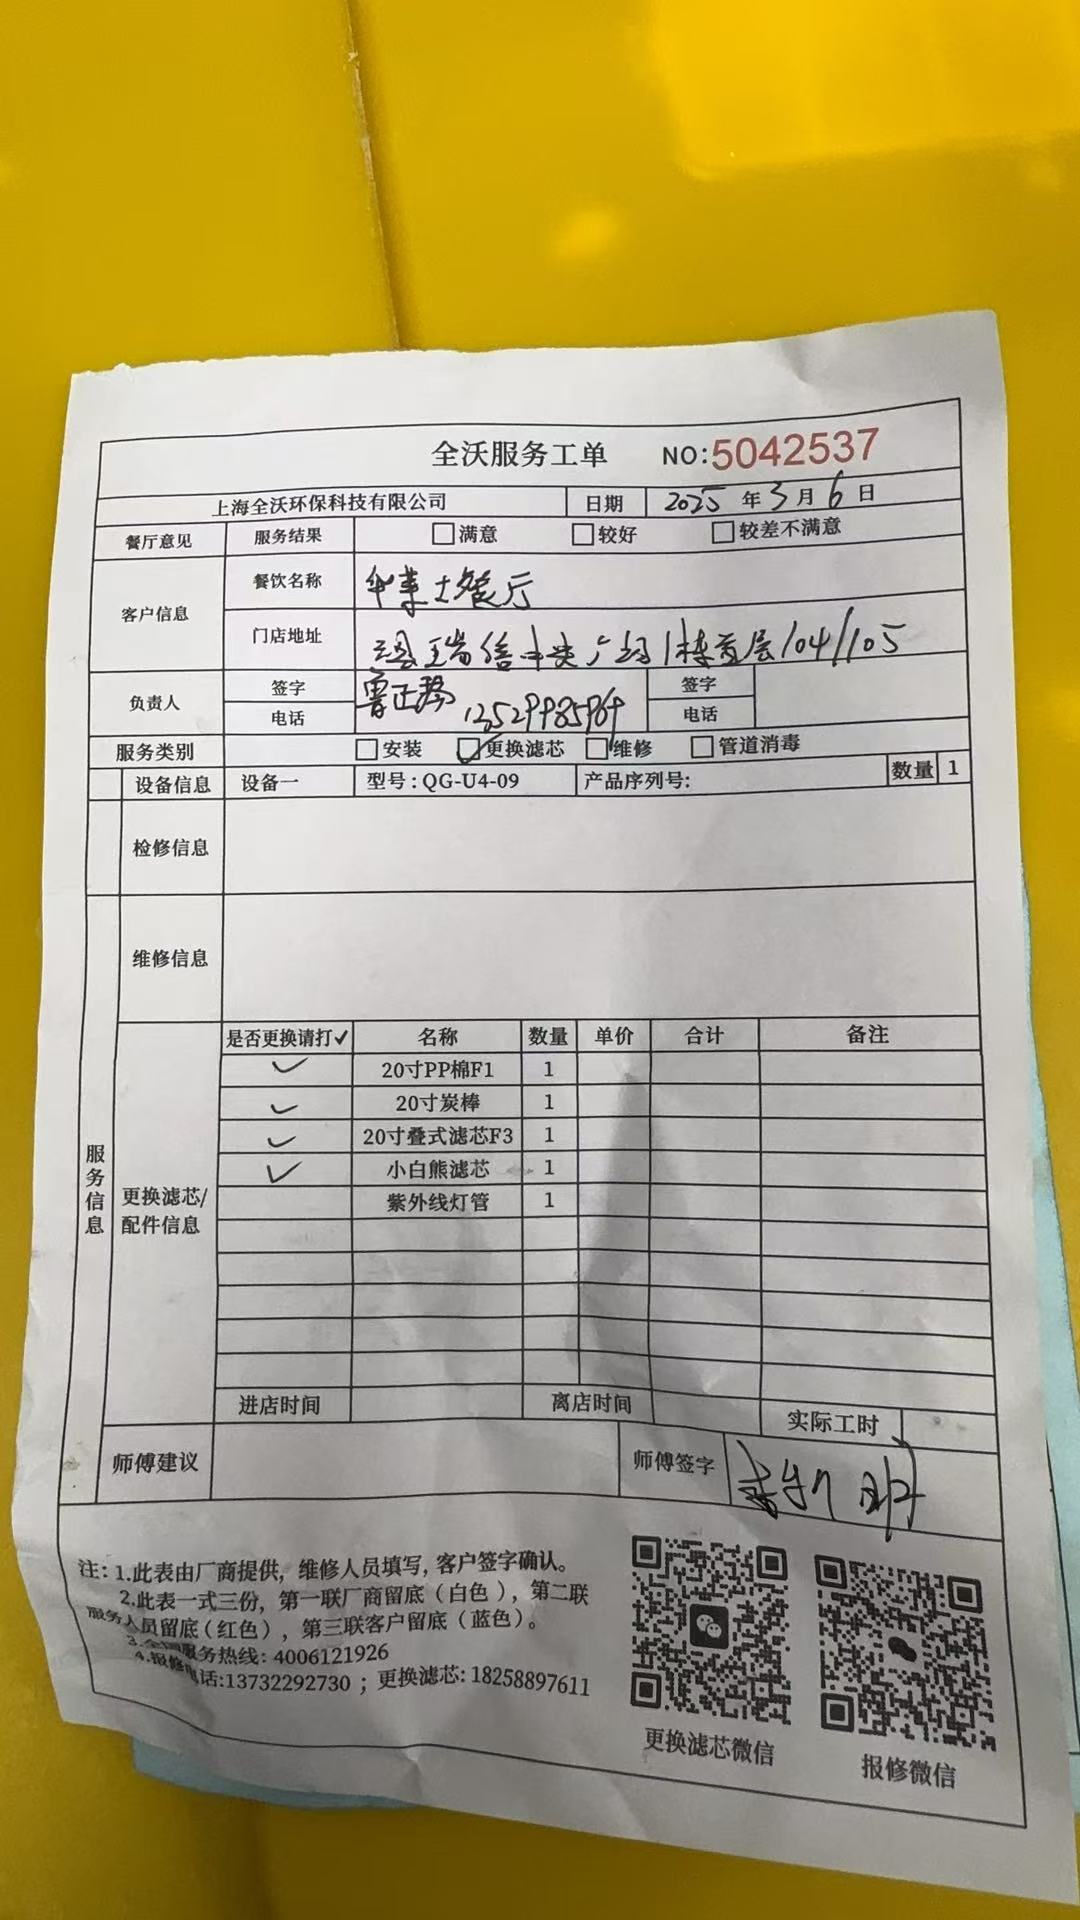 全沃服务工单 NO:5042537
上海全沃环保科技有限公司 日期 2025年3月6日
餐厅意见 服务结果 满意 较好 较差不满意
客户信息 餐饮名称 华莱士餐厅
门店地址 瑞信中央广场1栋壹层104/105
负责人 签字 签字
电话 13529985969 电话
服务类别 安装 更换滤芯 维修 管道消毒
设备信息 设备一 型号:QG-U4-09 产品序列号: 数量 1
检修信息
维修信息
服务信息
更换滤芯/
配件信息
是否更换请打✓ 名称 数量 单价 合计 备注
✓ 20寸PP棉F1 1
✓ 20寸炭棒 1
✓ 20寸叠式滤芯F3 1
✓ 小白熊滤芯 1
紫外线灯管 1
进店时间 离店时间 实际工时
师傅建议 师傅签字
注: 1.此表由厂商提供, 维修人员填写, 客户签字确认。
2.此表一式三份, 第一联厂商留底(白色), 第二联
服务人员留底(红色), 第三联客户留底(蓝色)。
3.全国服务热线: 4006121926
4.报修电话:13732292730 ; 更换滤芯: 18258897611
更换滤芯微信
报修微信